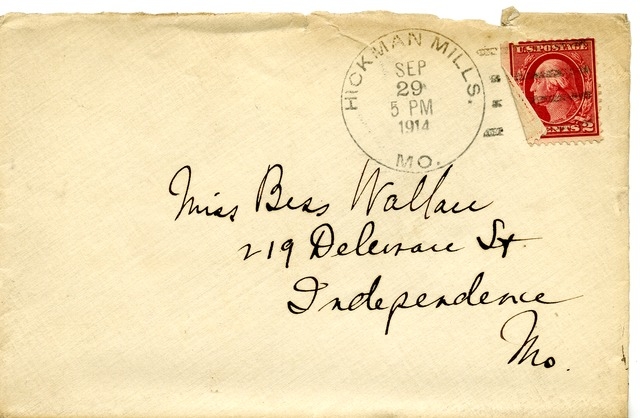 HICKMAN MILLS.
SEP
29
5 PM
1914
MO.
U.S. POSTAGE
CENTS 2
Miss Bess Wallace
219 Delaware St.
Independence
Mo.